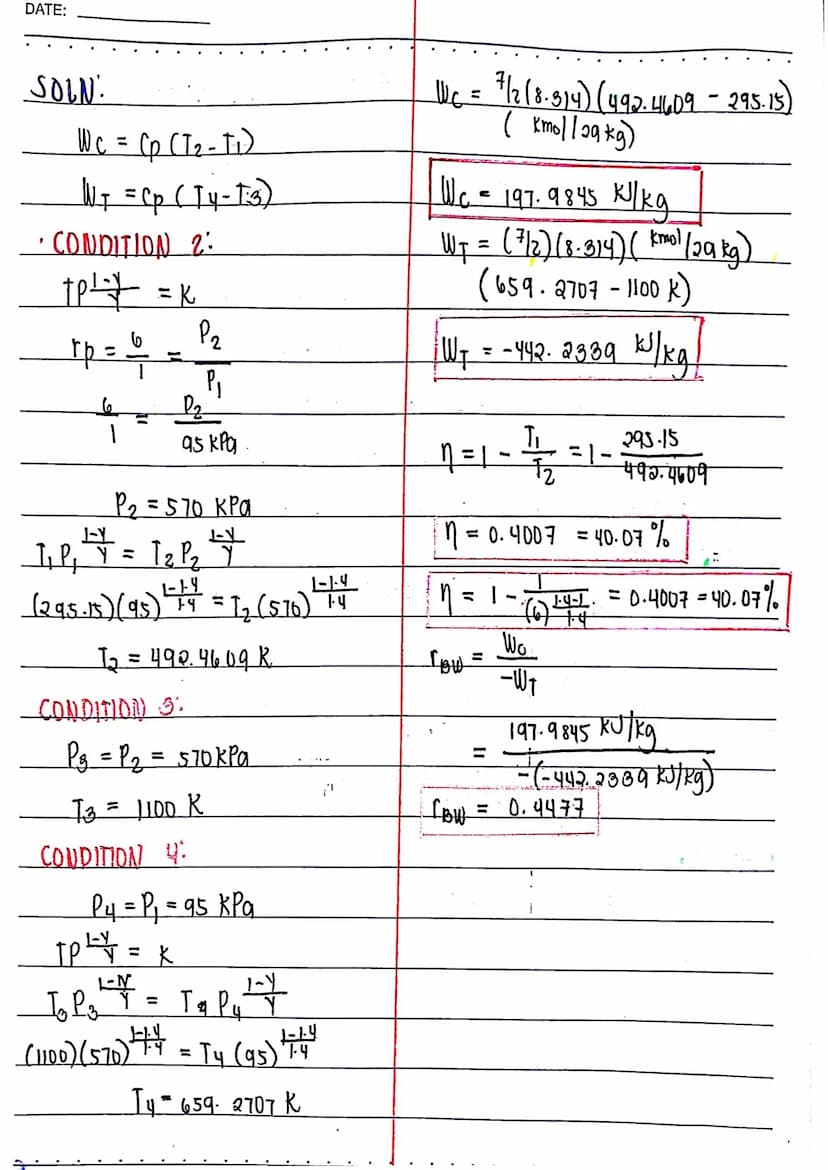 DATE:
SOLN:
Wc = Cp (T2 - T1)
WT = Cp (T4 - T3)
· CONDITION 2:
TP^(1-γ/γ) = K
rp = 6/1 = P2/P1
6/1 = P2/95 kPa
P2 = 570 KPa
T1P1^(1-γ/γ) = T2P2^(1-γ/γ)
(295.15)(95)^(1-1.4/1.4) = T2 (570)^(1-1.4/1.4)
T2 = 492.4609 K
CONDITION 3:
P3 = P2 = 570 kPa
T3 = 1100 K
CONDITION 4:
P4 = P1 = 95 KPa
TP^(1-γ/γ) = K
T3P3^(1-γ/γ) = T4P4^(1-γ/γ)
(1100)(570)^(1-1.4/1.4) = T4 (95)^(1-1.4/1.4)
T4 = 659.2707 K
Wc = 7/2 (8.314) (492.4609 - 295.15)
( Kmol/29 kg)
Wc = 197.9845 KJ/kg
WT = (7/2)(8.314)( Kmol/29 kg)
(659.2707 - 1100 K)
WT = -442.2339 KJ/kg
η = 1 - T1/T2 = 1 - 295.15/492.4609
η = 0.4007 = 40.07 %
η = 1 - 1/(6)^(1.4-1/1.4) = 0.4007 = 40.07%
rBW = Wc/-WT
= 197.9845 KJ/kg / -(-442.2339 KJ/kg)
rBW = 0.4477